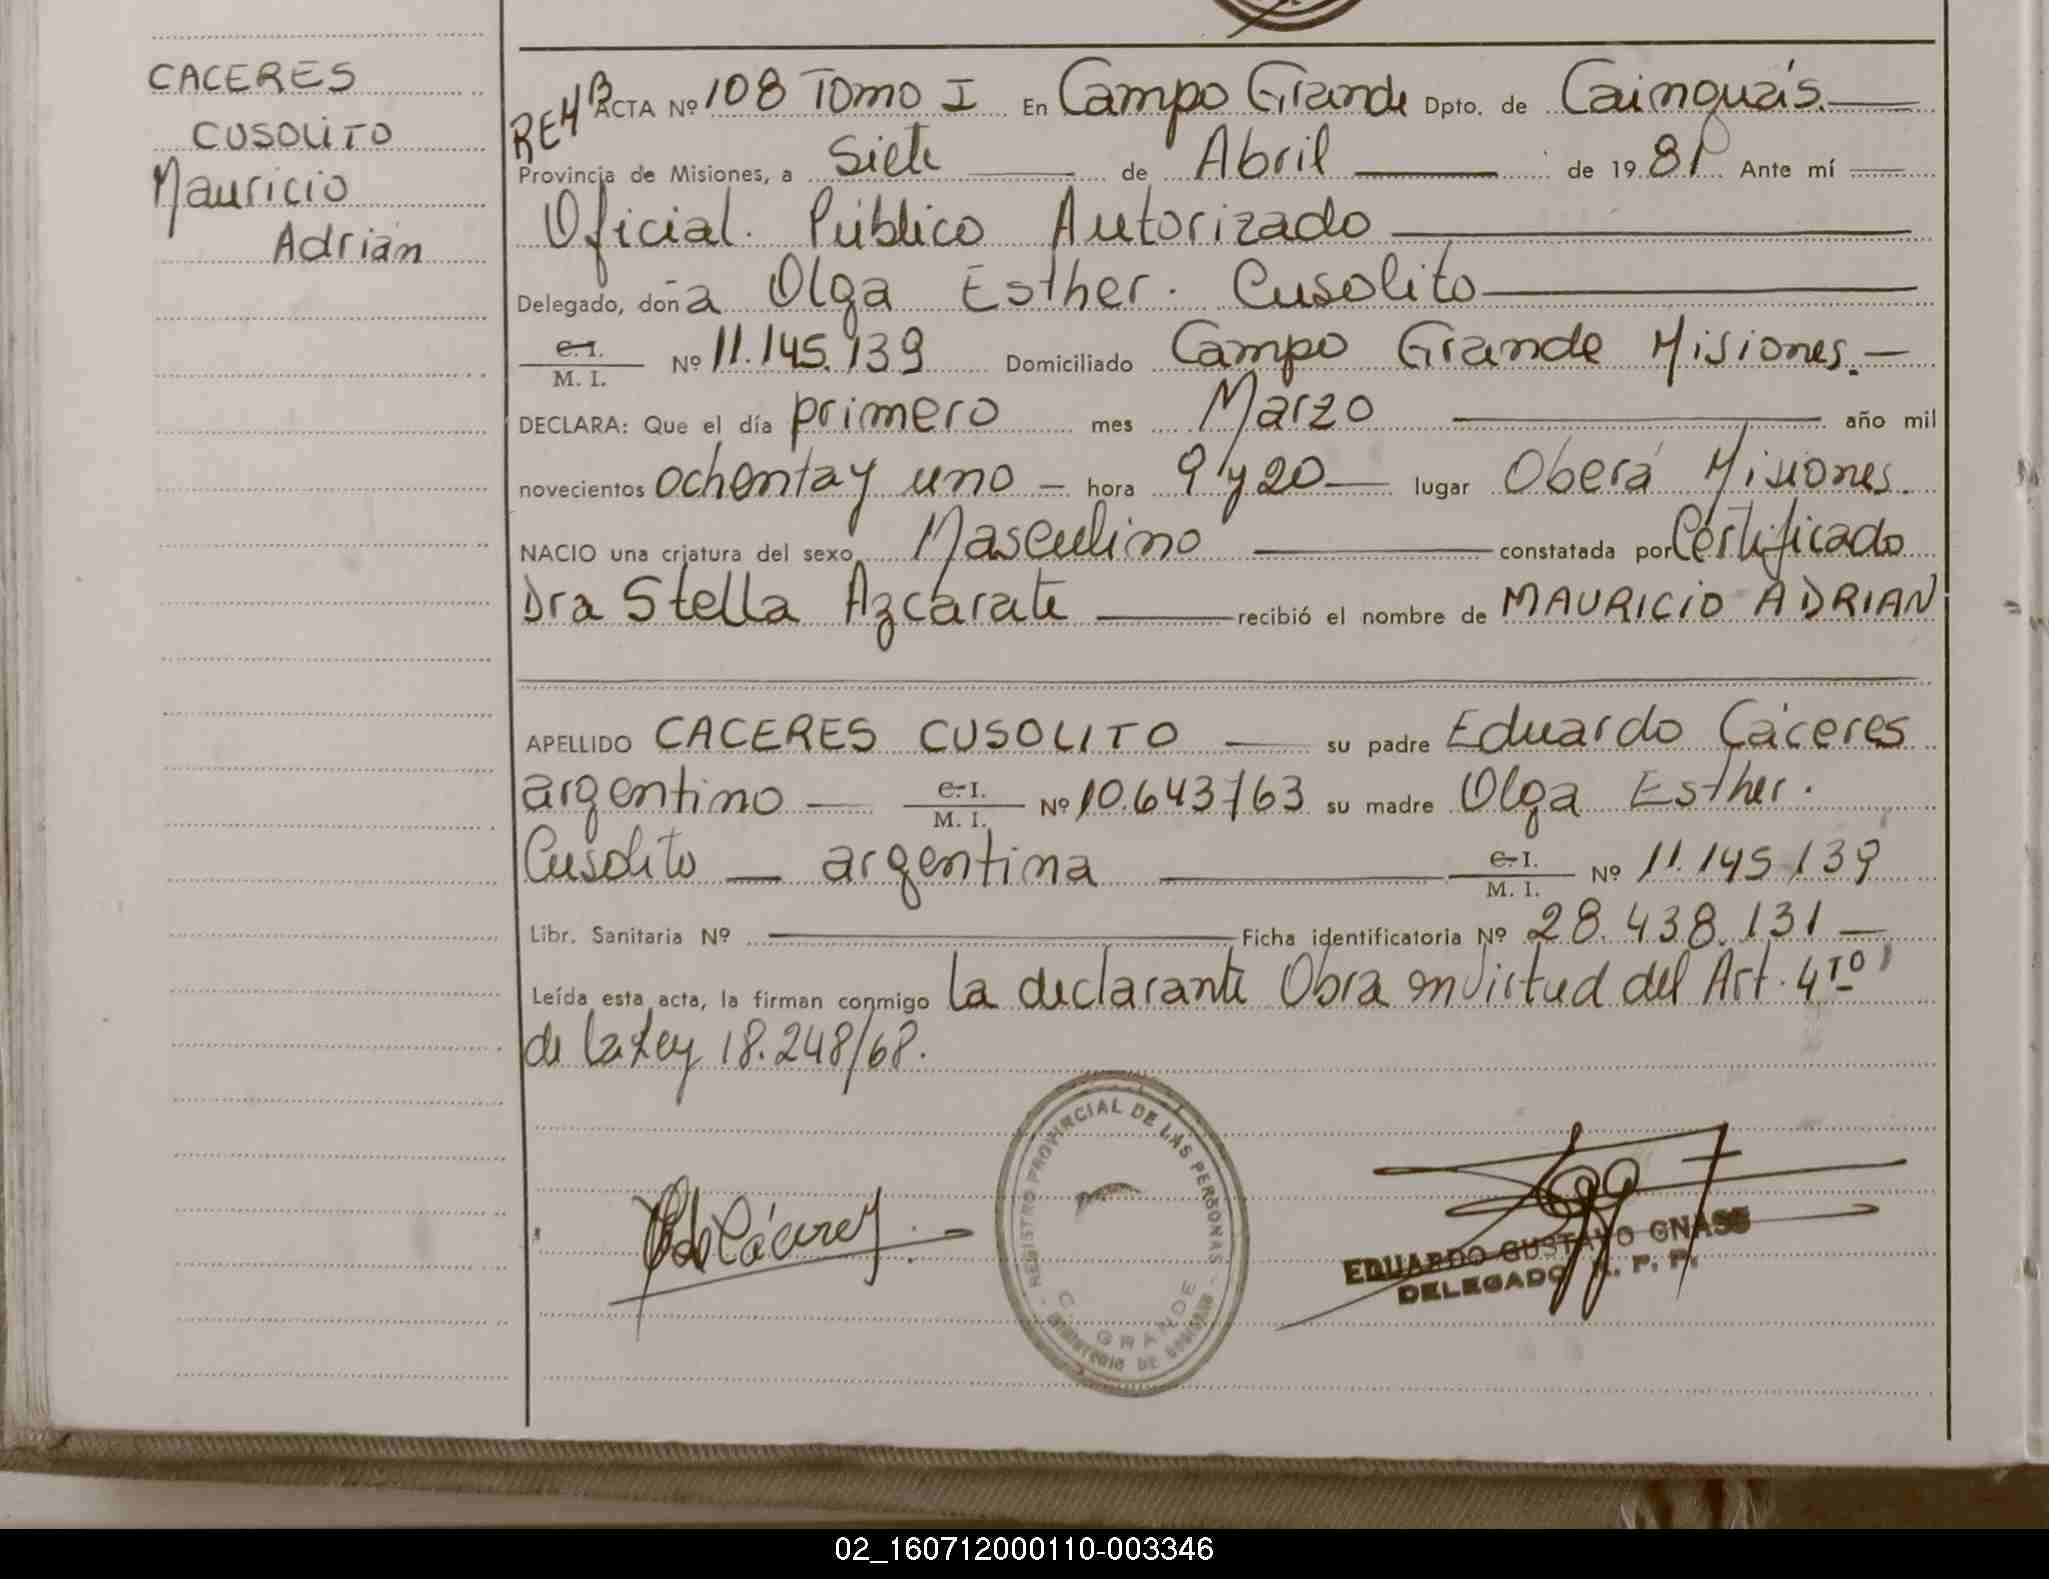 CACERES
CUSOLITO
Mauricio
Adrián
REHB
ACTA Nº 108 Tomo I En Campo Grande Dpto. de Cainguás.
Provincia de Misiones, a Siete de Abril de 1981 Ante mí
Oficial. Público Autorizado
Delegado, doña Olga Esther. Cusolito
C. I.
M. I. Nº 11.145.139 Domiciliado Campo Grande Misiones.
DECLARA: Que el día primero mes Marzo año mil
novecientos ochenta y uno hora 9 y 20 lugar Oberá Misiones.
NACIO una criatura del sexo Masculino constatada por Certificado
Dra Stella Azcarate recibió el nombre de MAURICIO ADRIAN
APELLIDO CACERES CUSOLITO su padre Eduardo Cáceres
argentino C. I.
M. I. Nº 10.643763 su madre Olga Esther.
Cusolito argentina C. I.
M. I. Nº 11.145.139
Libr. Sanitaria Nº Ficha identificatoria Nº 28.438.131
Leída esta acta, la firman conmigo la declarante Obra en virtud del Art. 4to
de la Ley 18.248/68.
REGISTRO PROVINCIAL DE LAS PERSONAS
C. GRANDE
MINISTERIO DE GOBIERNO
EDUARDO GUSTAVO GNASS
DELEGADO R. P. P.
02_160712000110-003346